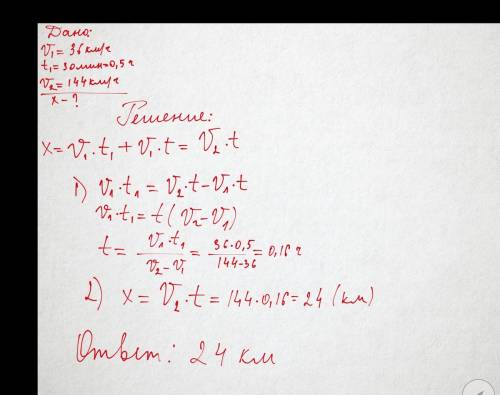 Дано:
V₁ = 36 км/ч
t₁ = 30 мин = 0,5 ч
V₂ = 144 км/ч
x - ?
Решение:
x = V₁ · t₁ + V₁ · t = V₂ · t
1) V₁ · t₁ = V₂ t - V₁ · t
V₁ · t₁ = t (V₂ - V₁)
t = V₁ · t₁ / V₂ - V₁ = 36 · 0,5 / 144 - 36 = 0,16 ч
2) x = V₂ · t = 144 · 0,16 = 24 (км)
Ответ: 24 км